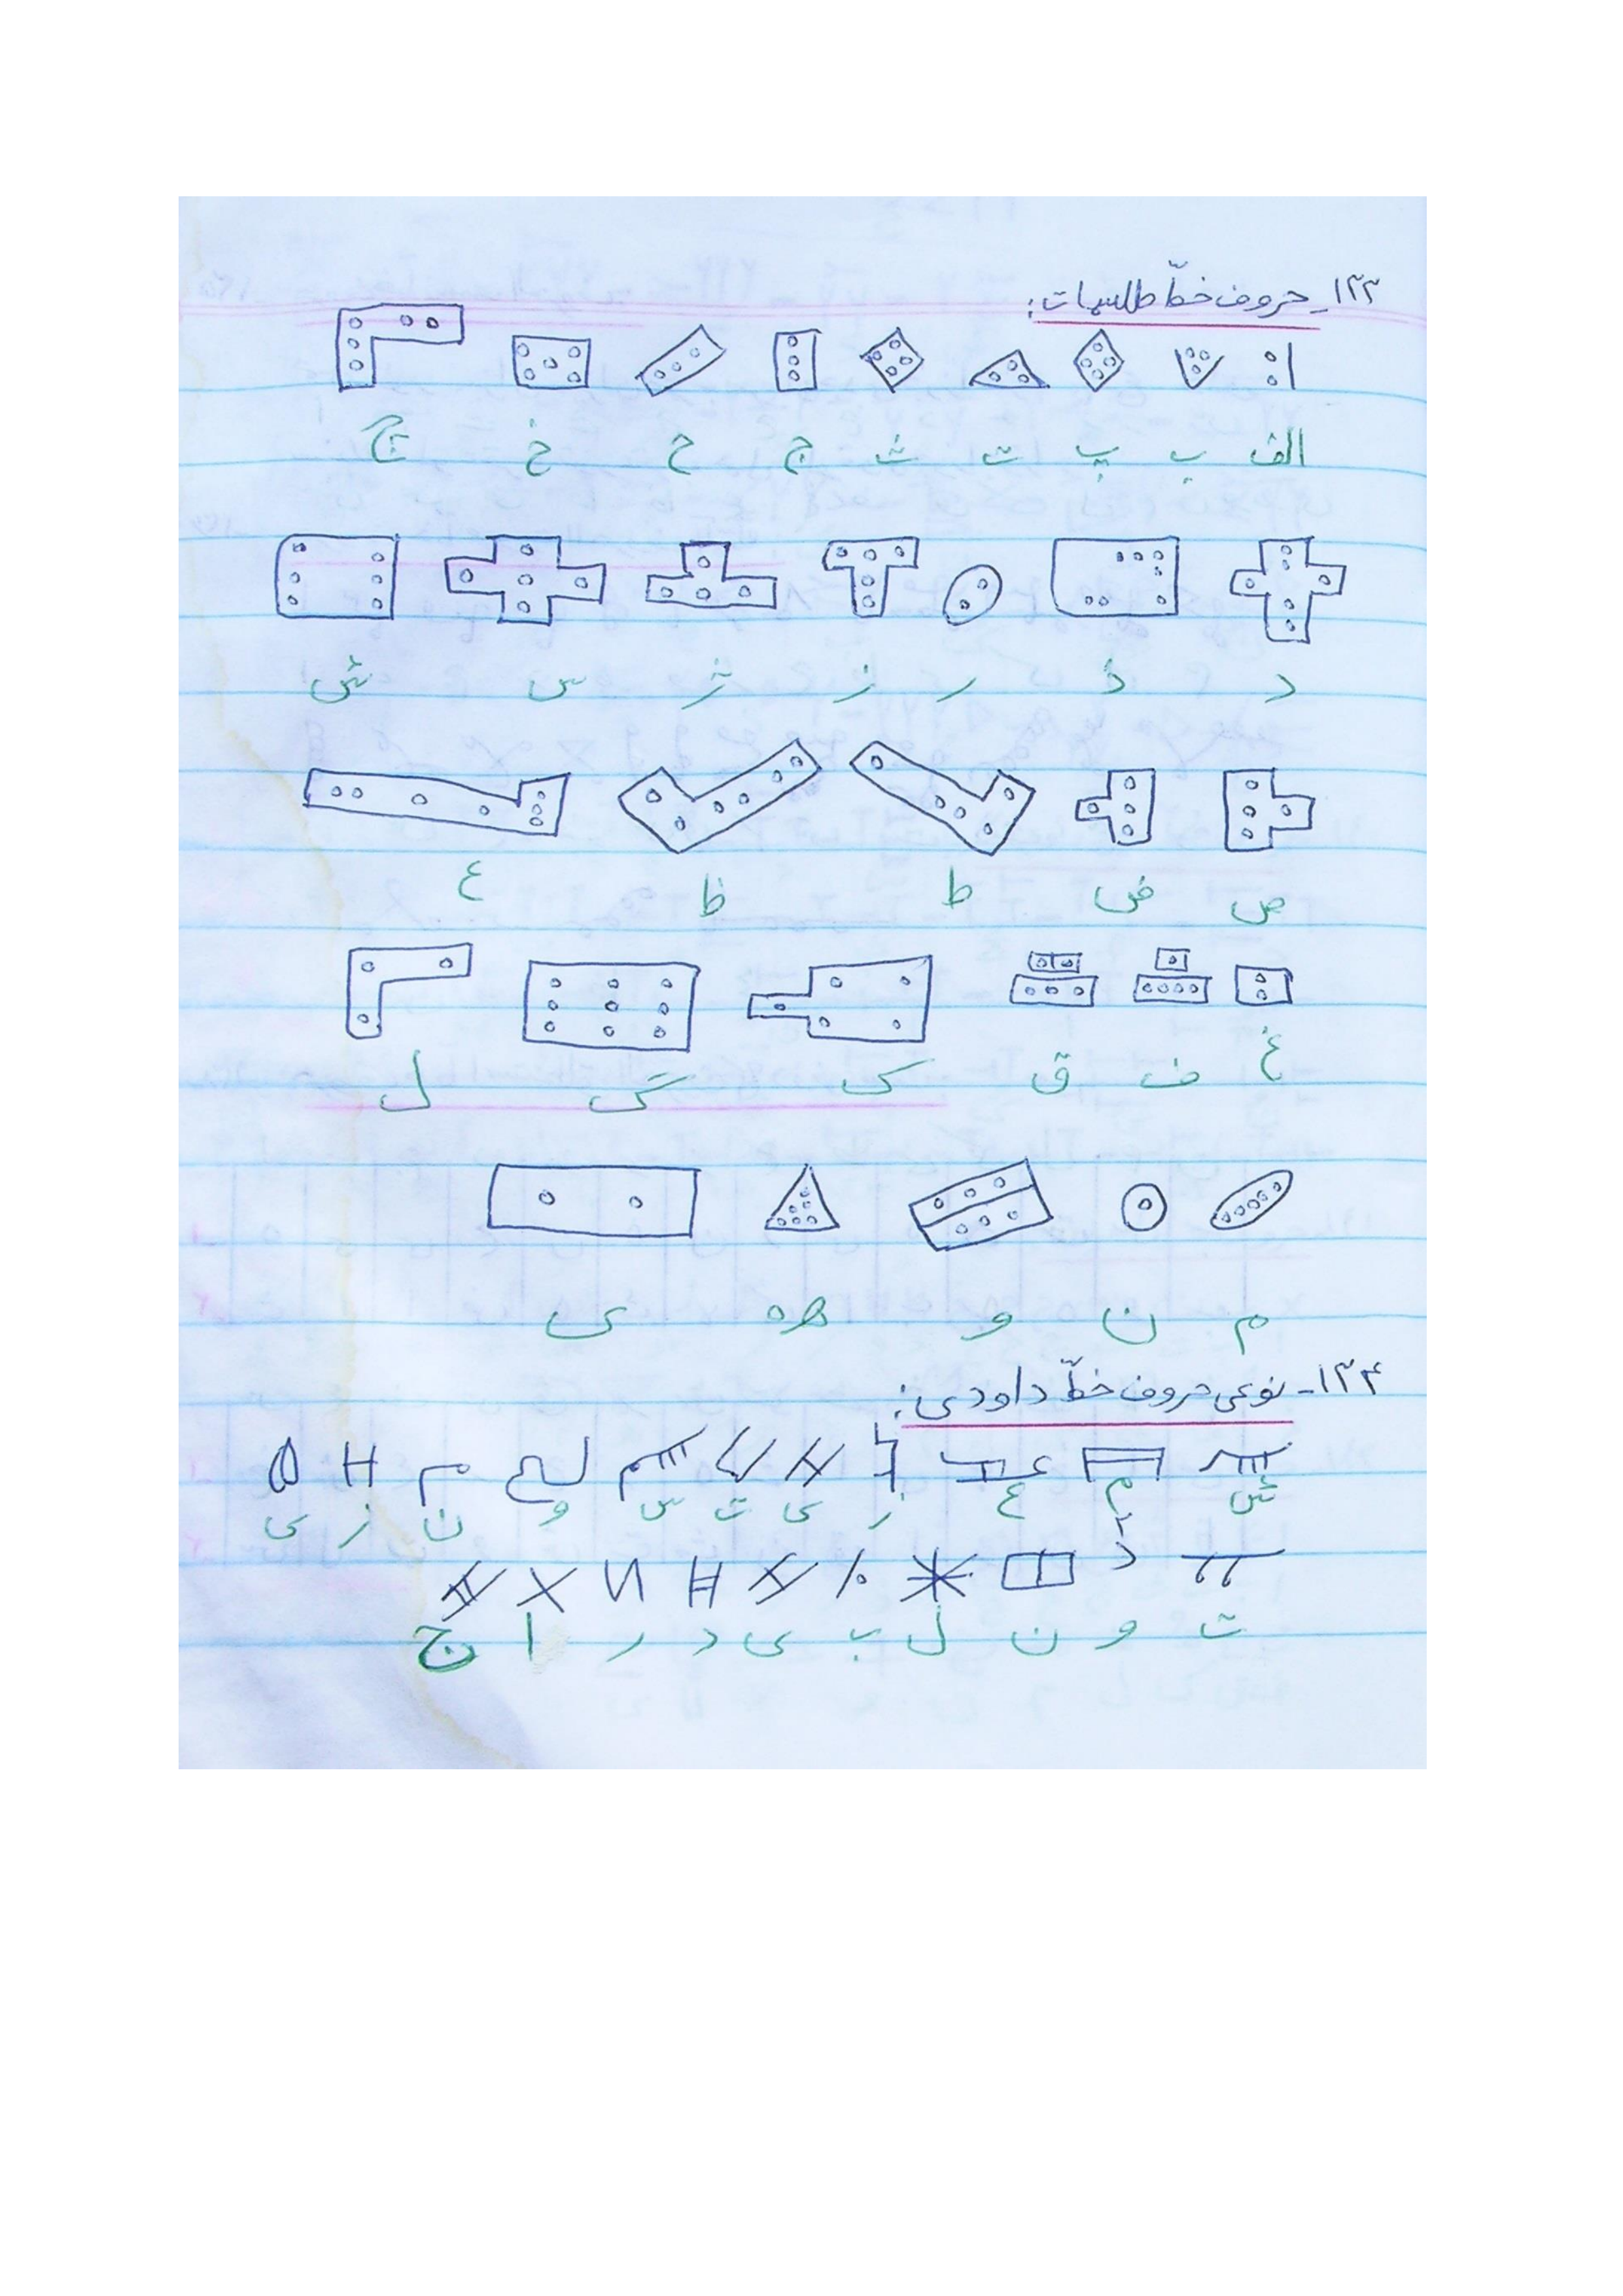 ۱۲۳_ حروف خطّ طلسمات:
الف ب پ ت ث ج ح خ چ
د ذ ر ز ژ س ش
ص ض ط ظ ع
غ ف ق ک گ ل
م ن و ه ه ی
۱۲۴_ نوعی حروف خطّ داودی:
ش م ع ز ی ت س و ن ز ی
ت و ن ل ب ی د ر ا ج